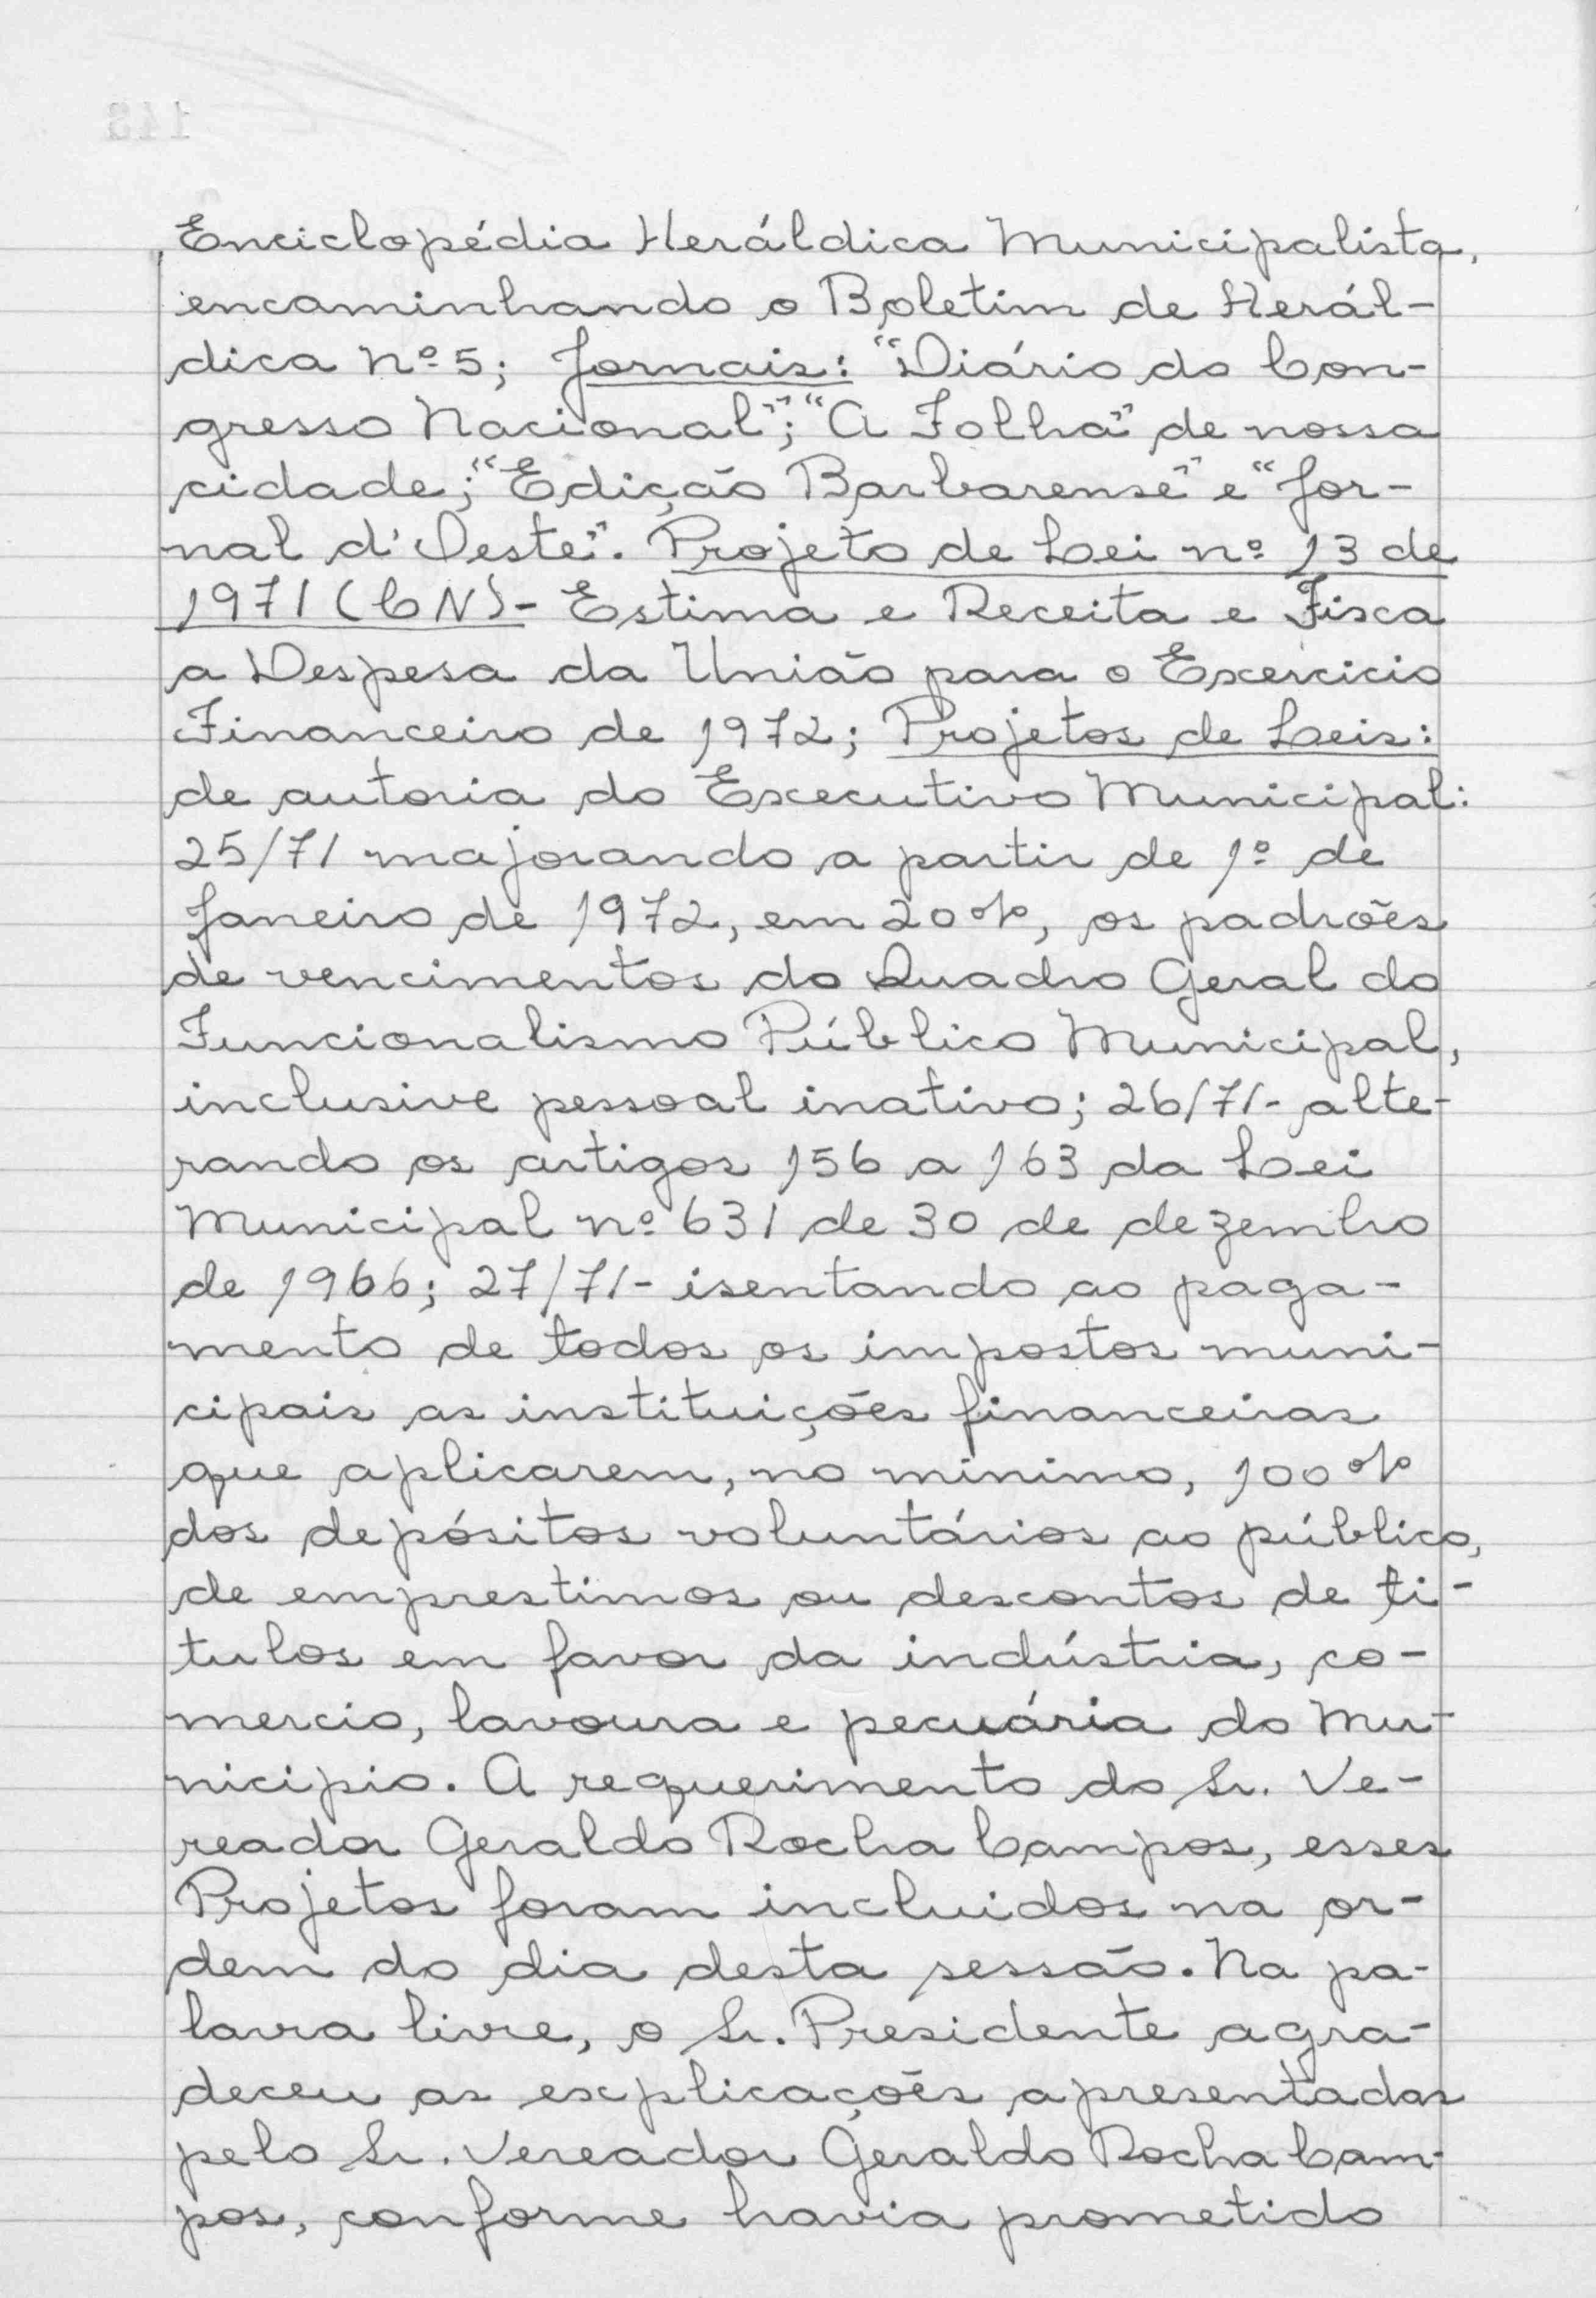 Enciclopédia Heráldica Municipalista,
encaminhando o Boletim de Herál-
dica nº 5; Jornais: "Diário do Con-
gresso Nacional"; "A Folha" de nossa
cidade; "Edição Barbarense" e "Jor-
nal d'Oeste". Projeto de Lei nº 13 de
1971 (CN)- Estima e Receita e Fisca
a Despesa da União para o Exercicio
Financeiro de 1972; Projetos de Leis:
de autoria do Executivo Municipal:
25/71 majorando a partir de 1º de
Janeiro de 1972, em 20%, os padrões
de vencimentos do Quadro Geral do
Funcionalismo Público Municipal,
inclusive pessoal inativo; 26/71- alte-
rando os artigos 156 a 163 da Lei
Municipal nº 631 de 30 de dezembro
de 1966; 27/71- isentando ao paga-
mento de todos os impostos muni-
cipais as instituições financeiras
que aplicarem, no minimo, 100%
dos depósitos voluntários ao público,
de emprestimos ou descontos de ti-
tulos em favor da indústria, co-
mercio, lavoura e pecuária do Mu-
nicipio. A requerimento do Sr. Ve-
reador Geraldo Rocha Campos, esses
Projetos foram incluidos na or-
dem do dia desta sessão. Na pa-
lavra livre, o Sr. Presidente agra-
deceu as explicações apresentadas
pelo Sr. Vereador Geraldo Rocha Cam-
pos, conforme havia prometido